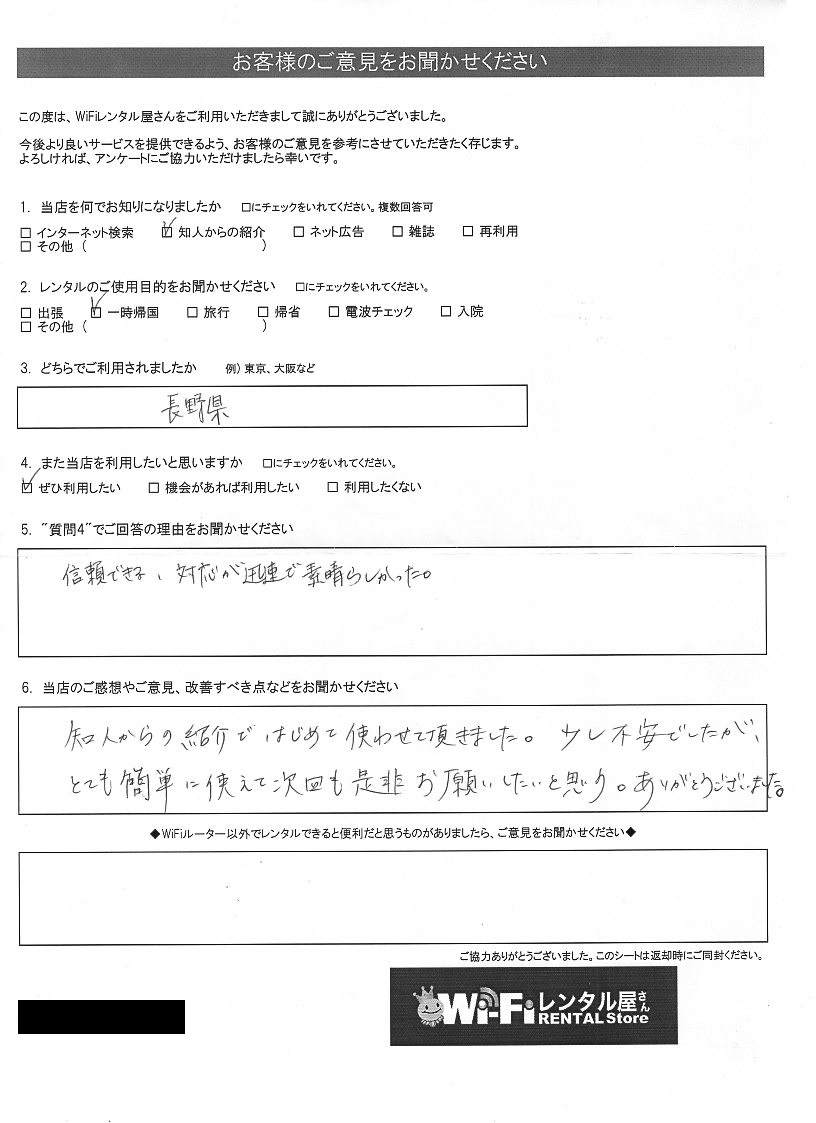 お客様のご意見をお聞かせください
この度は、WiFiレンタル屋さんをご利用いただきまして誠にありがとうございました。
今後より良いサービスを提供できるよう、お客様のご意見を参考にさせていただきたく存じます。
よろしければ、アンケートにご協力いただけましたら幸いです。
1. 当店を何でお知りになりましたか □にチェックをいれてください。複数回答可
□ インターネット検索 ☑ 知人からの紹介 □ ネット広告 □ 雑誌 □ 再利用
□ その他 ( )
2. レンタルのご使用目的をお聞かせください □にチェックをいれてください。
□ 出張 ☑ 一時帰国 □ 旅行 □ 帰省 □ 電波チェック □ 入院
□ その他 ( )
3. どちらでご利用されましたか 例) 東京、大阪など
長野県
4. また当店を利用したいと思いますか □にチェックをいれてください。
☑ ぜひ利用したい □ 機会があれば利用したい □ 利用したくない
5. "質問4"でご回答の理由をお聞かせください
信頼できる、対応が迅速で素晴らしかった。
6. 当店のご感想やご意見、改善すべき点などをお聞かせください
知人からの紹介ではじめて使わせて頂きました。少し不安でしたが、
とても簡単に使えて次回も是非お願いしたいと思う。ありがとうございました。
◆WiFiルーター以外でレンタルできると便利だと思うものがありましたら、ご意見をお聞かせください◆
ご協力ありがとうございました。このシートは返却時にご同封ください。
Wi-Fiレンタル屋さん
RENTAL Store